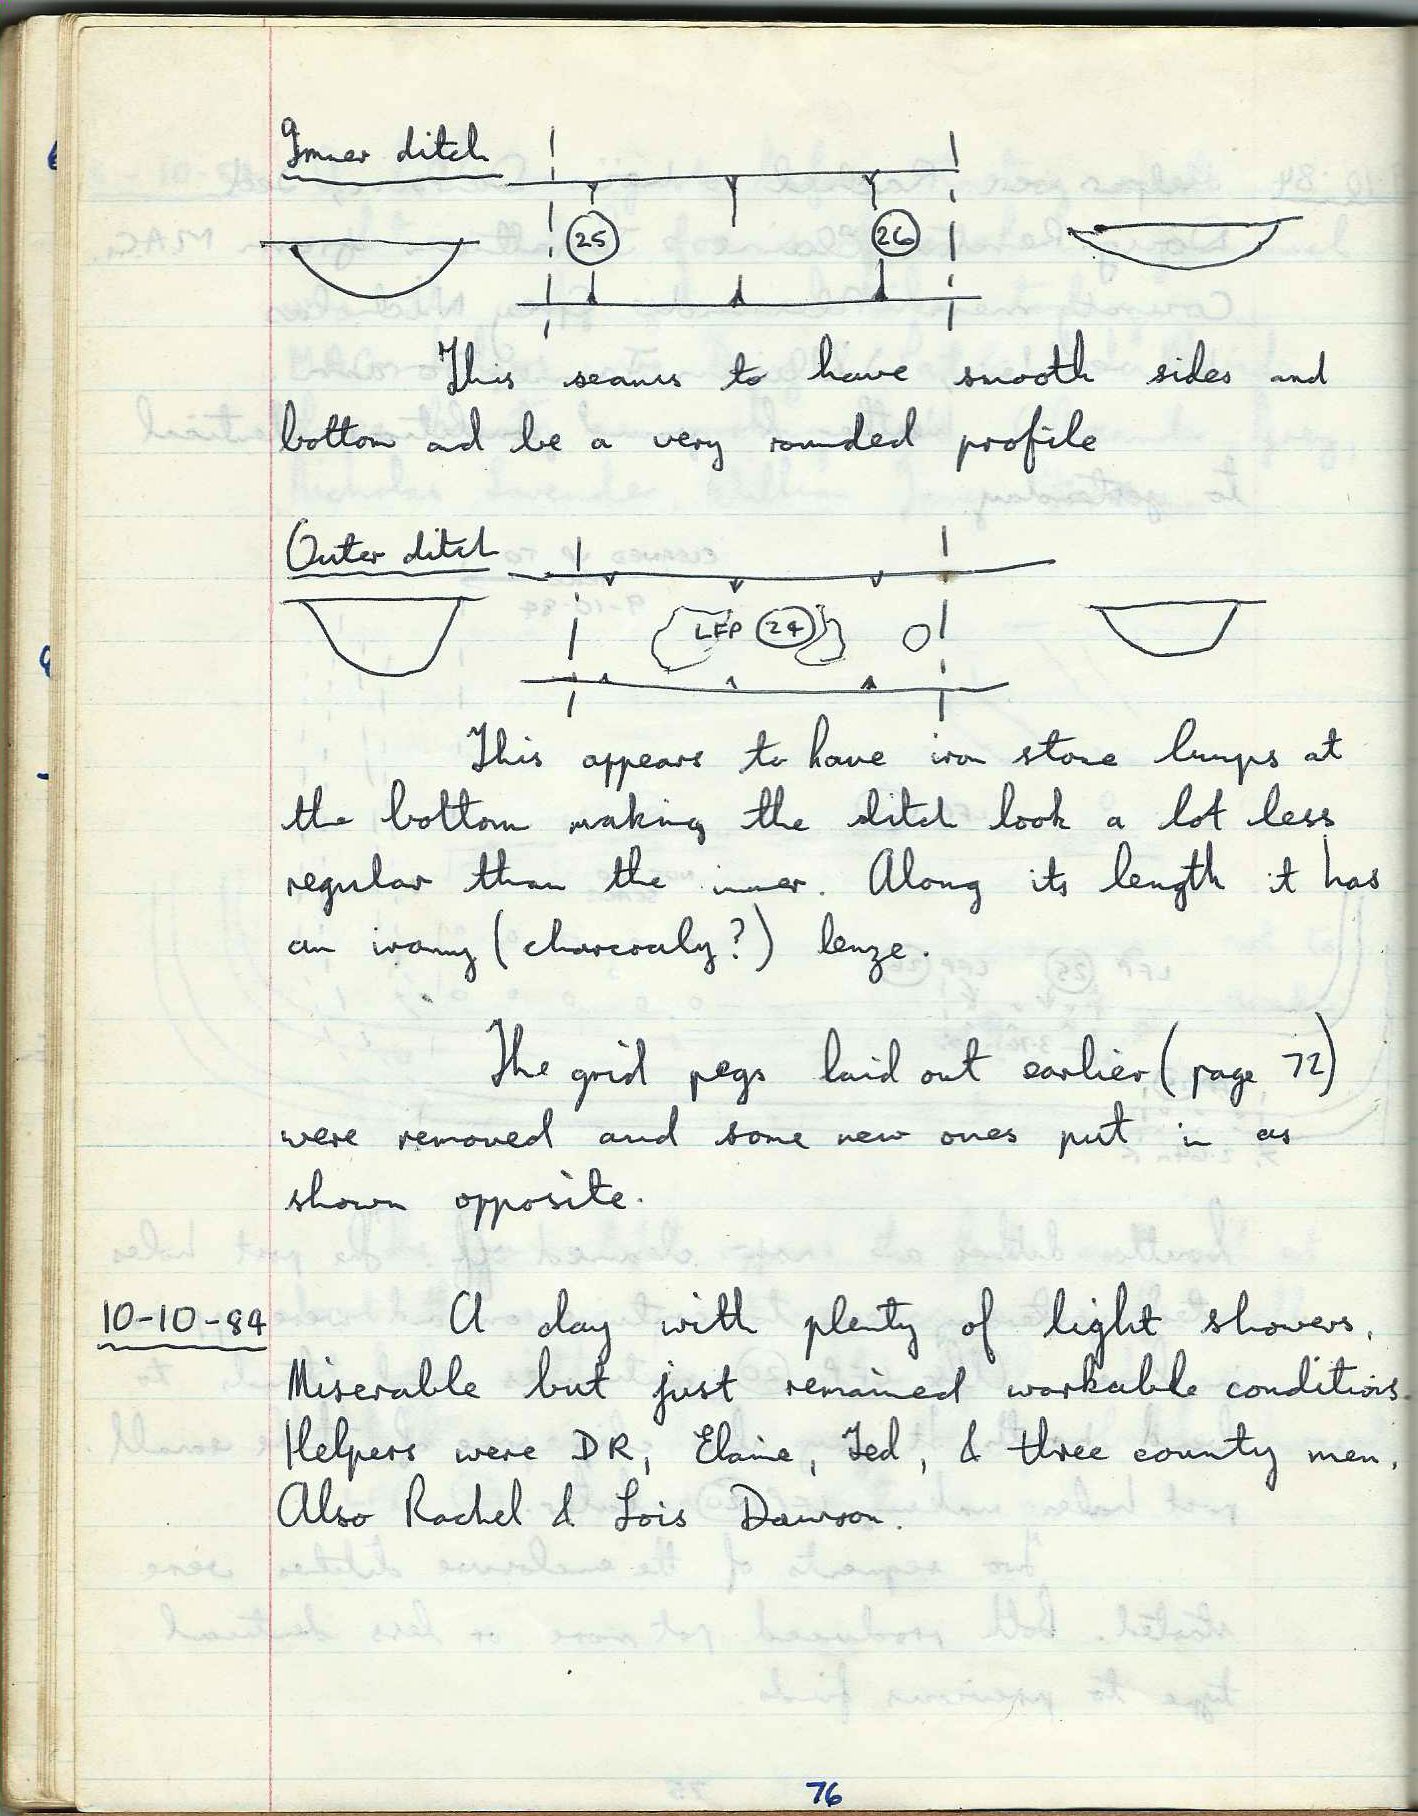 Inner ditch
25 26
This seams to have smooth sides and
bottom ad be a very rounded profile
Outer ditch
LFP 24
This appears to have iron stone lumps at
the bottom making the ditch look a lot less
regular than the inner. Along its length it has
an irony (charcoaly?) lenze.
The grid pegs laid out earlier (page 72)
were removed and some new ones put in as
shown opposite.
10-10-84 A day with plenty of light showers.
Miserable but just remained workable conditions.
Helpers were DR, Elaine, Ted, & three county men.
Also Rachel & Lois Dawson.
76